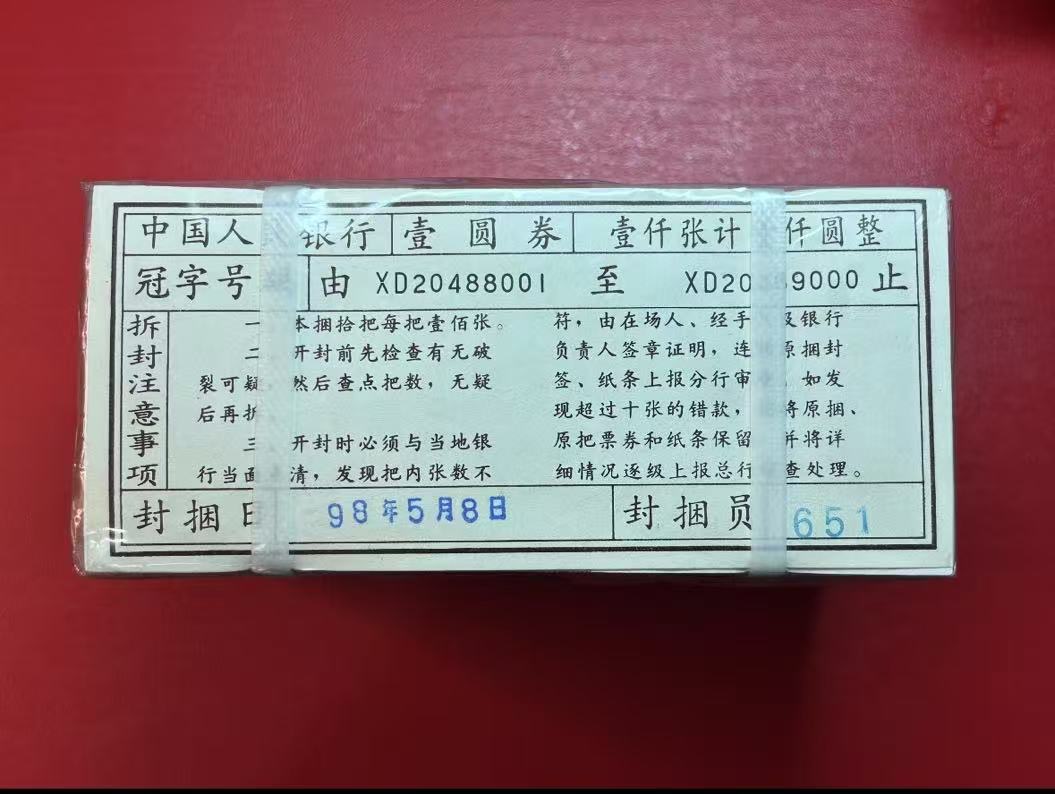 中国人 银行 壹圆券 壹仟张计 仟圆整
冠字号 由 XD20488001 至 XD20 9000 止
拆封注意事项
一 本捆拾把每把壹佰张。
二 开封前先检查有无破
裂可疑，然后查点把数，无疑
后再拆
三 开封时必须与当地银
行当面 清，发现把内张数不
符，由在场人、经手 及银行
负责人签章证明，连 原捆封
签、纸条上报分行审 。如发
现超过十张的错款， 将原捆、
原把票券和纸条保留 并将详
细情况逐级上报总行 查处理。
封捆日 98年5月8日 封捆员 651